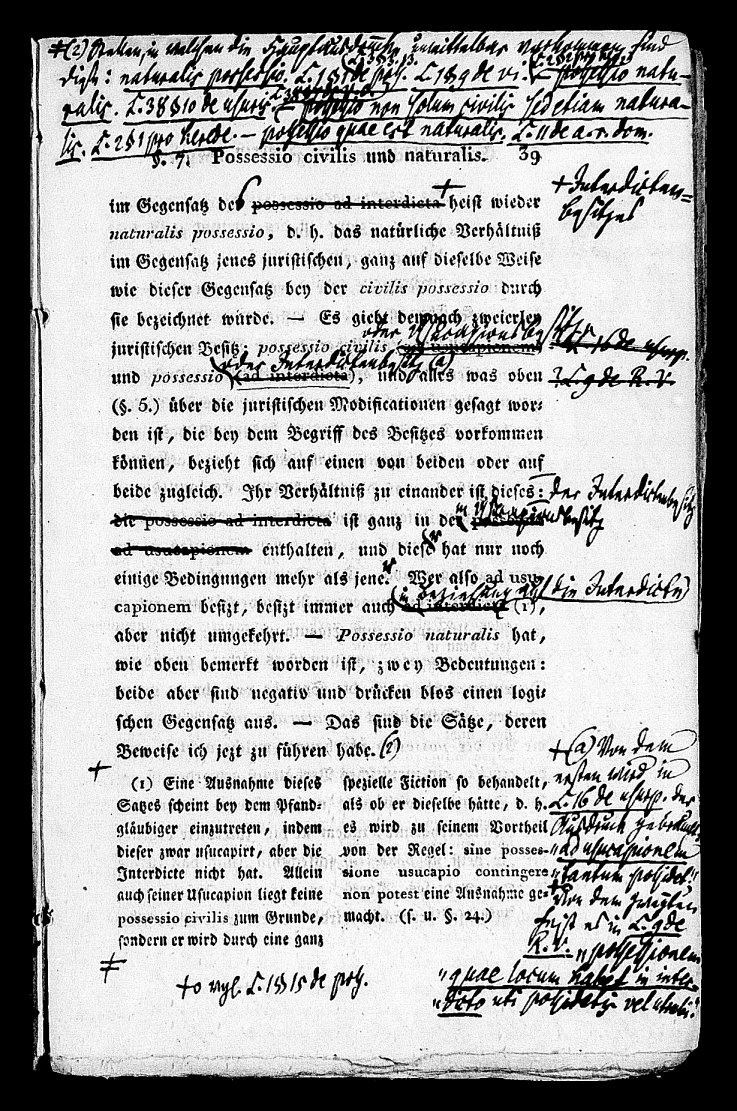 ‡(2) Stellen, in welchen die Hauptausdrücke unmittelbar vorkommen, sind
diese: naturalis possessio. L. 1 § 1 de poss. L. 1 § 9 de vi. – possessio natu-
ralis. L. 38 § 10 de usuris – possessio non solum civilis sed etiam natura-
lis. L. 2 § 1 pro herede. – possessio quae est naturalis. L. 11 de a. r. dom.
§. 7. Possessio civilis und naturalis. 39
im Gegensatz des possessio ad interdicta heist wieder
+ Interdicten-
besitzes
naturalis possessio, d. h. das natürliche Verhältniß
im Gegensatz jenes juristischen, ganz auf dieselbe Weise
wie dieser Gegensatz bey der civilis possessio durch
sie bezeichnet wurde. — Es giebt demnach zweierley
oder Usucapionsbesitz
juristischen Besitz: possessio civilis (ad usucapionem)
L. 16 de usurp.
oder Interdictenbesitz (a)
und possessio (ad interdicta), und alles was oben
L. 9 de R. V.
(§. 5.) über die juristischen Modificationen gesagt wor-
den ist, die bey dem Begriff des Besitzes vorkommen
können, bezieht sich auf einen von beiden oder auf
beide zugleich. Ihr Verhältniß zu einander ist dieses:
der Interdictenbesitz
die possessio ad interdicta ist ganz in dem possessio
Usucapionsbesitz
ad usucapionem enthalten, und dieser hat nur noch
einige Bedingungen mehr als jener. Wer also ad usu-
in Beziehung auf die Interdicte
capionem besitzt, besitzt immer auch ad interdicta (1),
aber nicht umgekehrt. — Possessio naturalis hat,
wie oben bemerkt worden ist, zwey Bedeutungen:
beide aber sind negativ und drücken blos einen logi-
schen Gegensatz aus. — Das sind die Sätze, deren
Beweise ich jezt zu führen habe. (2)
(1) Eine Ausnahme dieses
Satzes scheint bey dem Pfand-
gläubiger einzutreten, indem
dieser zwar usucapirt, aber die
Interdicte nicht hat. Allein
auch seiner Usucapion liegt keine
possessio civilis zum Grunde,
sondern er wird durch eine ganz
spezielle Fiction so behandelt,
als ob er dieselbe hätte, d. h.
es wird zu seinem Vortheil
von der Regel: sine posses-
sione usucapio contingere
non potest eine Ausnahme ge-
macht. (s. u. §. 24.)
+ (a) Von dem
ersten wird in
L. 16 de usurp. der
Ausdruck gebraucht:
"ad usucapionem
tantum possidet"
Von dem zweyten
heist es in L. 9 de
R. V. "possessionem
"quae locum habet in inter-
"dicto uti possidetis vel utrubi."
+o vgl. L. 1 § 15 de poss.